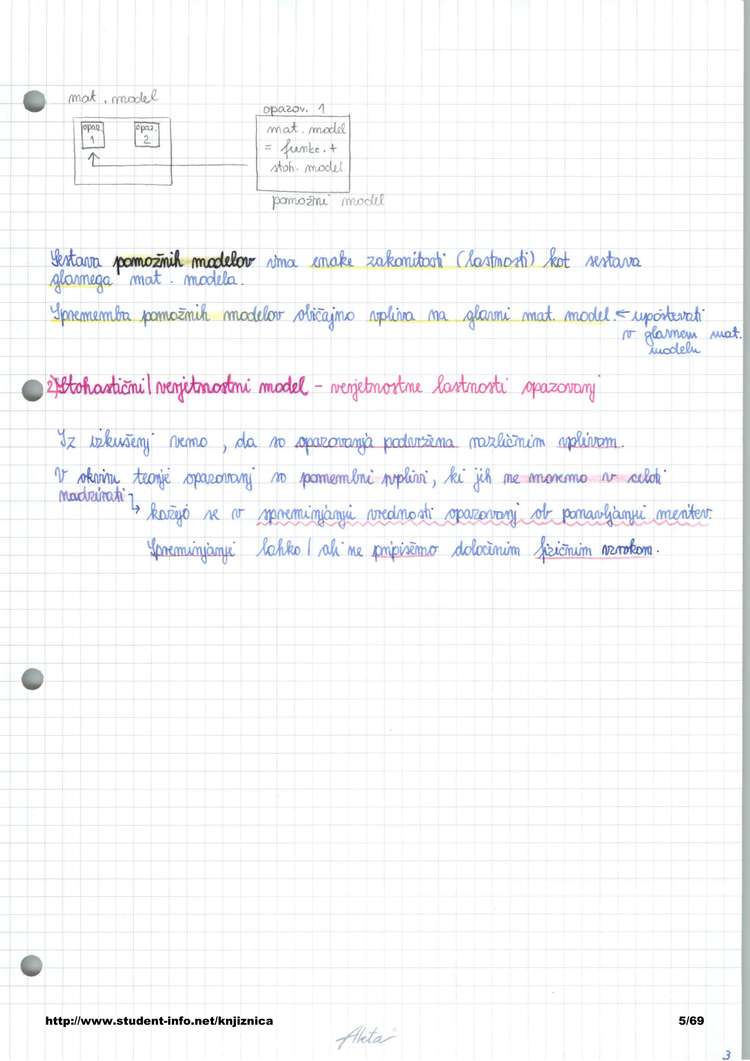 mat. model
opaz. 1
opaz. 2
opazov. 1
mat. model
= funkc. +
stoh. model
pomožni model
Sestava pomožnih modelov ima enake zakonitosti (lastnosti) kot sestava
glavnega mat. modela.
Sprememba pomožnih modelov običajno vpliva na glavni mat. model. ← upoštevati
v glavnem mat.
modelu
2) Stohastični / verjetnostni model - verjetnostne lastnosti opazovanj
Iz izkušenj vemo, da so opazovanja podvržena različnim vplivom.
V okviru teorije opazovanj so pomembni vplivi, ki jih ne moremo v celoti
nadzirati
↳ kažejo se v spreminjanju vrednosti opazovanj ob ponavljanju meritev.
Spreminjanje lahko / ali ne pripišemo določenim fizičnim vzrokom.
http://www.student-info.net/knjiznica
5/69
3